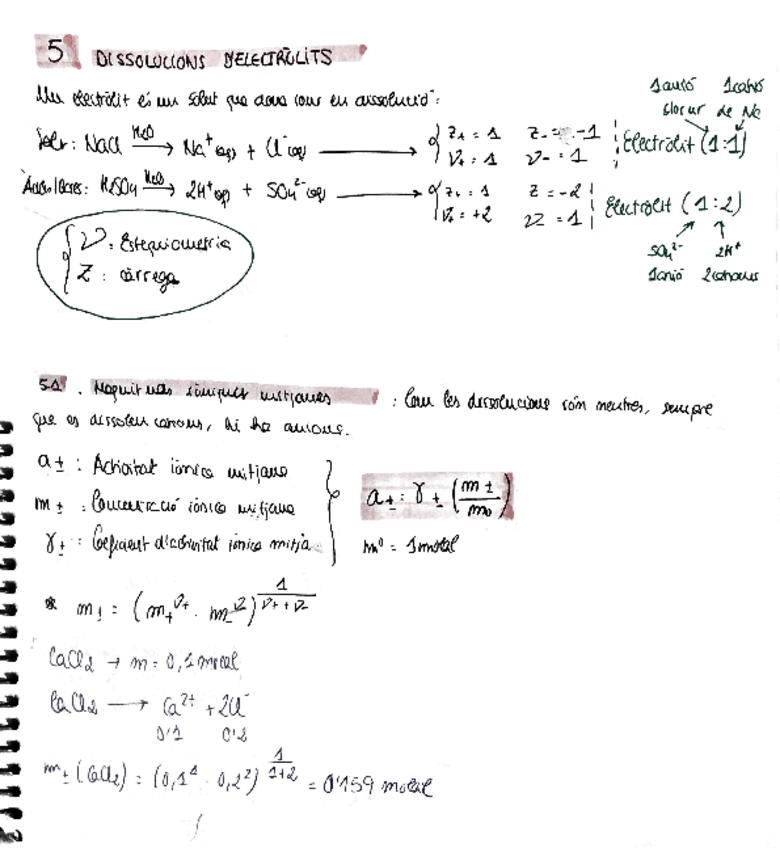 5 DISSOLUCIONS D'ELECTRÒLITS
Un electròlit és un solut que dona ions en dissolució:
1 anió 1 catió
Clorur de Na
Sals: NaCl H₂O → Na⁺(aq) + Cl⁻(aq) → { z₊ = 1 z₋ = -1 Electròlit (1:1)
ν₊ = 1 ν₋ = 1
Àcids/Bases: H₂SO₄ H₂O → 2H⁺(aq) + SO₄²⁻(aq) → { z₊ = 1 z = -2 Electròlit (1:2)
ν₊ = +2 ν₋ = 1
SO₄²⁻ 2H⁺
1 anió 2 cations
{ ν: Estequiometria
z: càrrega
5.1. Magnituds iòniques mitjanes: Com les dissolucions són neutres, sempre
que es dissolen cations, hi ha anions.
a±: Activitat iònica mitjana
m±: Concentració iònica mitjana
γ±: Coeficient d'activitat iònica mitja
a± = γ± (m±/m₀)
m⁰ = 1 molal
* m± = (m₊^ν₊ · m₋^ν₋)^(1/(ν₊+ν₋))
CaCl₂ → m = 0,1 molal
CaCl₂ → Ca²⁺ + 2Cl⁻
0'1 0'2
m± (CaCl₂) = (0,1¹ · 0,2²)^(1/(1+2)) = 0'159 molal